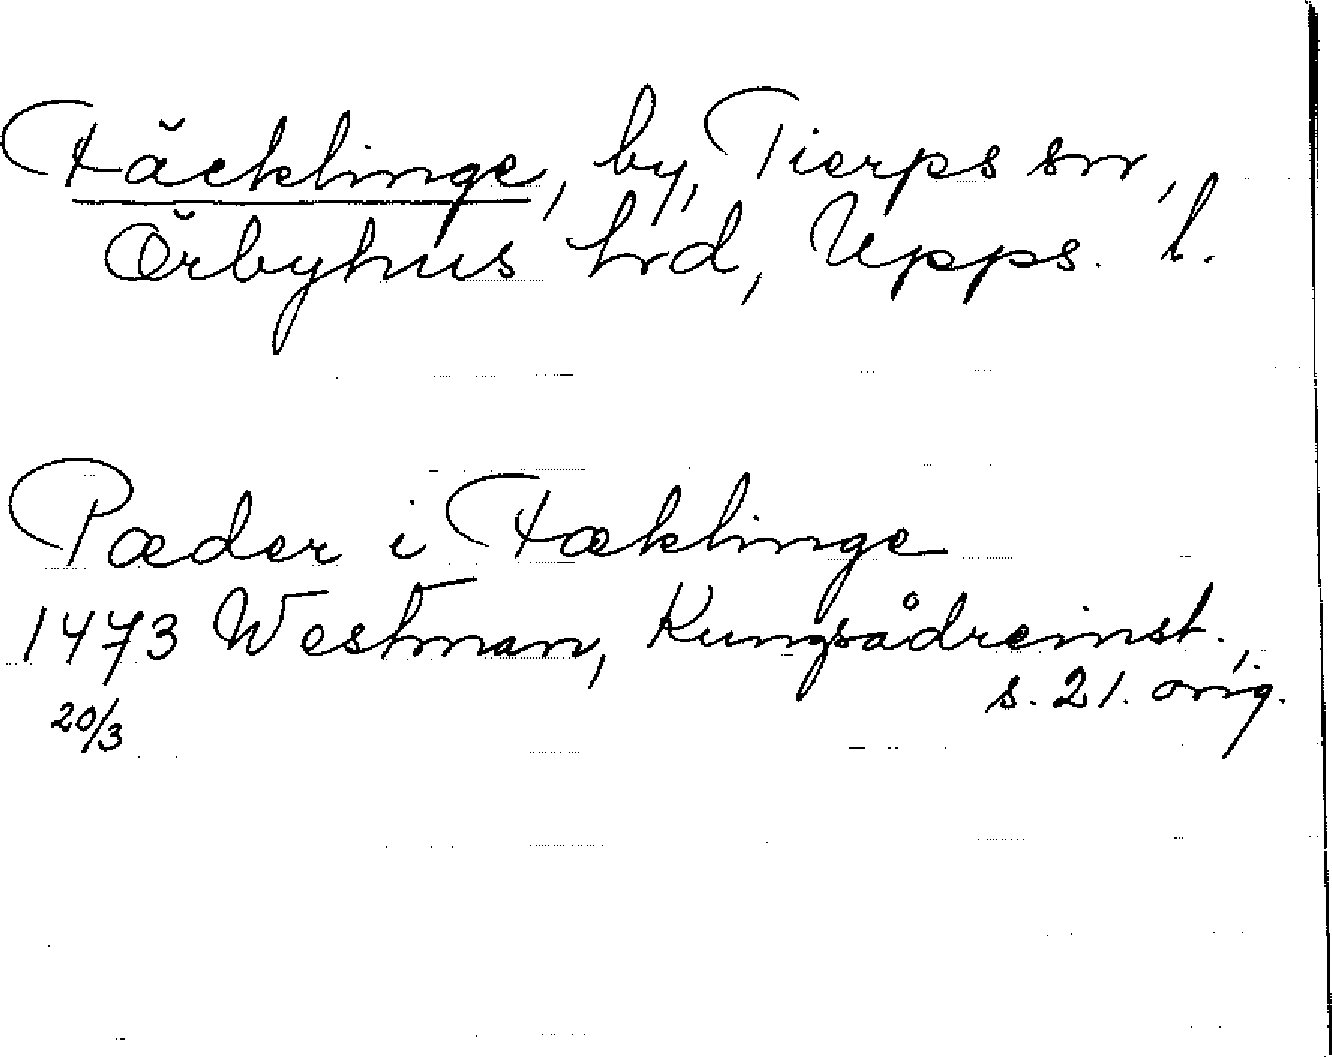 Fäcklinge, by, Tierps sn,
Örbyhus hrd, Upps. l.
Pæder i Fæklinge
1473 Westman, Kungsådreinst.,
20/3 s. 21. orig.